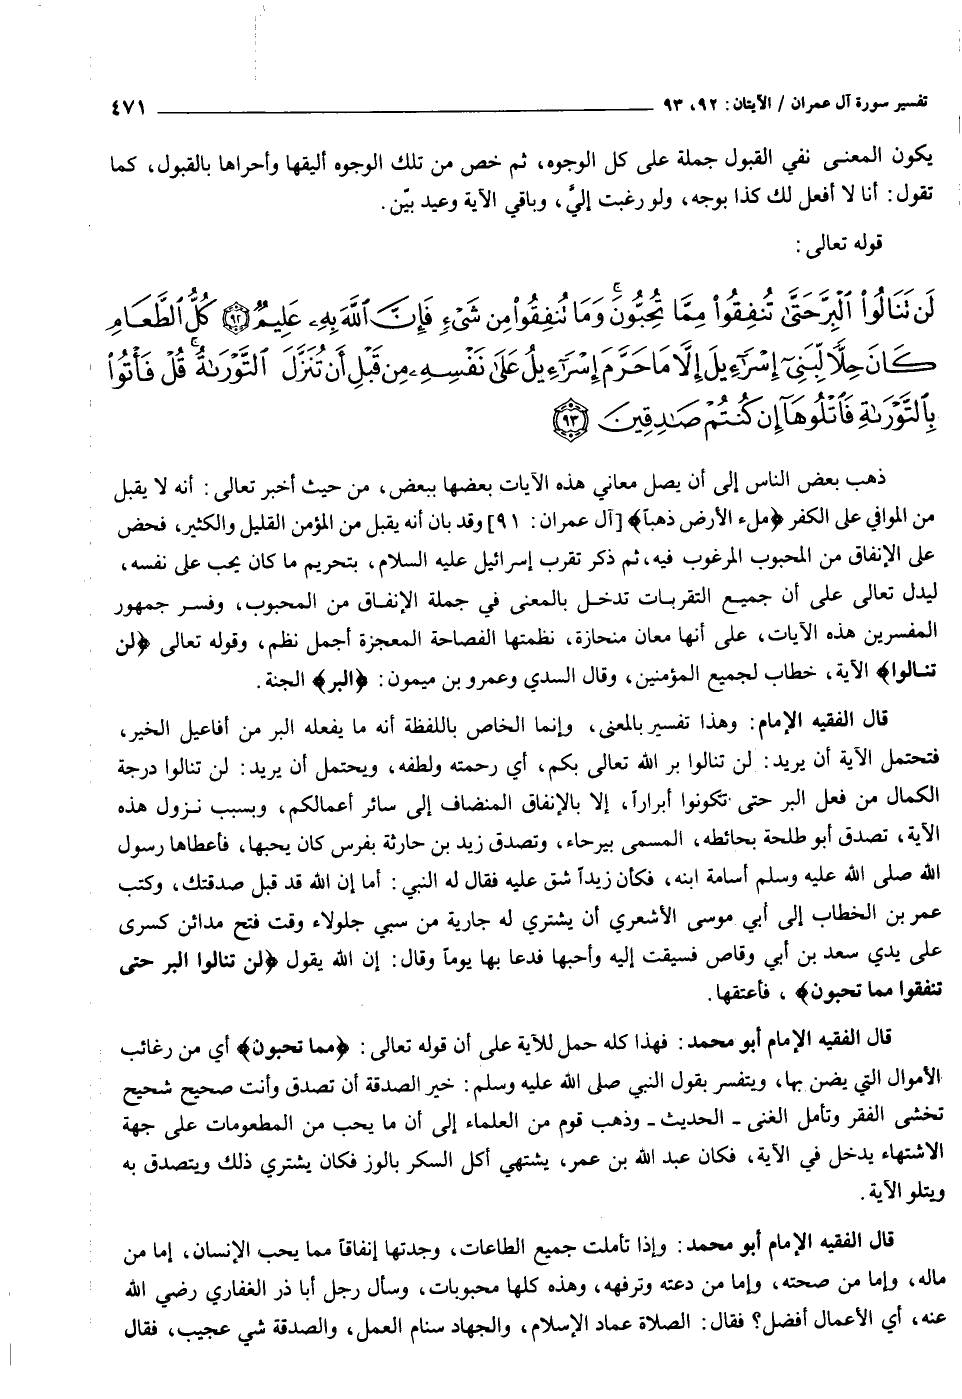 تفسير سورة آل عمران / الآيتان: ٩٢، ٩٣ ٤٧١
يكون المعنى نفي القبول جملة على كل الوجوه، ثم خص من تلك الوجوه أليقها وأحراها بالقبول، كما
تقول: أنا لا أفعل لك كذا بوجه، ولو رغبت إليَّ، وباقي الآية وعيد بيّن.
قوله تعالى:
لَن نَنَالُوا۟ ٱلْبِرَّ حَتَّىٰ تُنفِقُوا۟ مِمَّا تُحِبُّونَ ۚ وَمَا نُنفِقُوا۟ مِن شَىْءٍ فَإِنَّ ٱللَّهَ بِهِۦ عَلِيمٌ ٩٢ كُلُّ ٱلطَّعَامِ
كَانَ حِلًّا لِّبَنِىٓ إِسْرَٰٓءِيلَ إِلَّا مَا حَرَّمَ إِسْرَٰٓءِيلُ عَلَىٰ نَفْسِهِۦ مِن قَبْلِ أَن تُنَزَّلَ ٱلتَّوْرَىٰةُ ۚ قُلْ فَأْتُوا۟
بِٱلتَّوْرَىٰةِ فَٱتْلُوهَآ إِن كُنتُمْ صَـٰدِقِينَ ٩٣
ذهب بعض الناس إلى أن يصل معاني هذه الآيات بعضها ببعض، من حيث أخبر تعالى: أنه لا يقبل
من الموافي على الكفر ﴿ملء الأرض ذهباً﴾ [آل عمران: ٩١] وقد بان أنه يقبل من المؤمن القليل والكثير، فحض
على الإنفاق من المحبوب المرغوب فيه، ثم ذكر تقرب إسرائيل عليه السلام، بتحريم ما كان يحب على نفسه،
ليدل تعالى على أن جميع التقربات تدخل بالمعنى في جملة الإنفاق من المحبوب، وفسر جمهور
المفسرين هذه الآيات، على أنها معان منحازة، نظمتها الفصاحة المعجزة أجمل نظم، وقوله تعالى ﴿لن
تنالوا﴾ الآية، خطاب لجميع المؤمنين، وقال السدي وعمرو بن ميمون: ﴿البر﴾ الجنة.
قال الفقيه الإمام: وهذا تفسير بالمعنى، وإنما الخاص باللفظة أنه ما يفعله البر من أفاعيل الخير،
فتحتمل الآية أن يريد: لن تنالوا بر الله تعالى بكم، أي رحمته ولطفه، ويحتمل أن يريد: لن تنالوا درجة
الكمال من فعل البر حتى تكونوا أبراراً، إلا بالإنفاق المنضاف إلى سائر أعمالكم، وبسبب نزول هذه
الآية، تصدق أبو طلحة بحائطه، المسمى بيرحاء، وتصدق زيد بن حارثة بفرس كان يحبها، فأعطاها رسول
الله صلى الله عليه وسلم أسامة ابنه، فكأن زيداً شق عليه فقال له النبي: أما إن الله قد قبل صدقتك، وكتب
عمر بن الخطاب إلى أبي موسى الأشعري أن يشتري له جارية من سبي جلولاء وقت فتح مدائن كسرى
على يدي سعد بن أبي وقاص فسيقت إليه وأحبها فدعا بها يوماً وقال: إن الله يقول ﴿لن تنالوا البر حتى
تنفقوا مما تحبون﴾ ، فأعتقها.
قال الفقيه الإمام أبو محمد: فهذا كله حمل للآية على أن قوله تعالى: ﴿مما تحبون﴾ أي من رغائب
الأموال التي يضن بها، ويتفسر بقول النبي صلى الله عليه وسلم: خير الصدقة أن تصدق وأنت صحيح شحيح
تخشى الفقر وتأمل الغنى ـ الحديث ـ وذهب قوم من العلماء إلى أن ما يحب من المطعومات على جهة
الاشتهاء يدخل في الآية، فكان عبد الله بن عمر، يشتهي أكل السكر بالوز فكان يشتري ذلك ويتصدق به
ويتلو الآية.
قال الفقيه الإمام أبو محمد: وإذا تأملت جميع الطاعات، وجدتها إنفاقاً مما يحب الإنسان، إما من
ماله، وإما من صحته، وإما من دعته وترفهه، وهذه كلها محبوبات، وسأل رجل أبا ذر الغفاري رضي الله
عنه، أي الأعمال أفضل؟ فقال: الصلاة عماد الإسلام، والجهاد سنام العمل، والصدقة شي عجيب، فقال